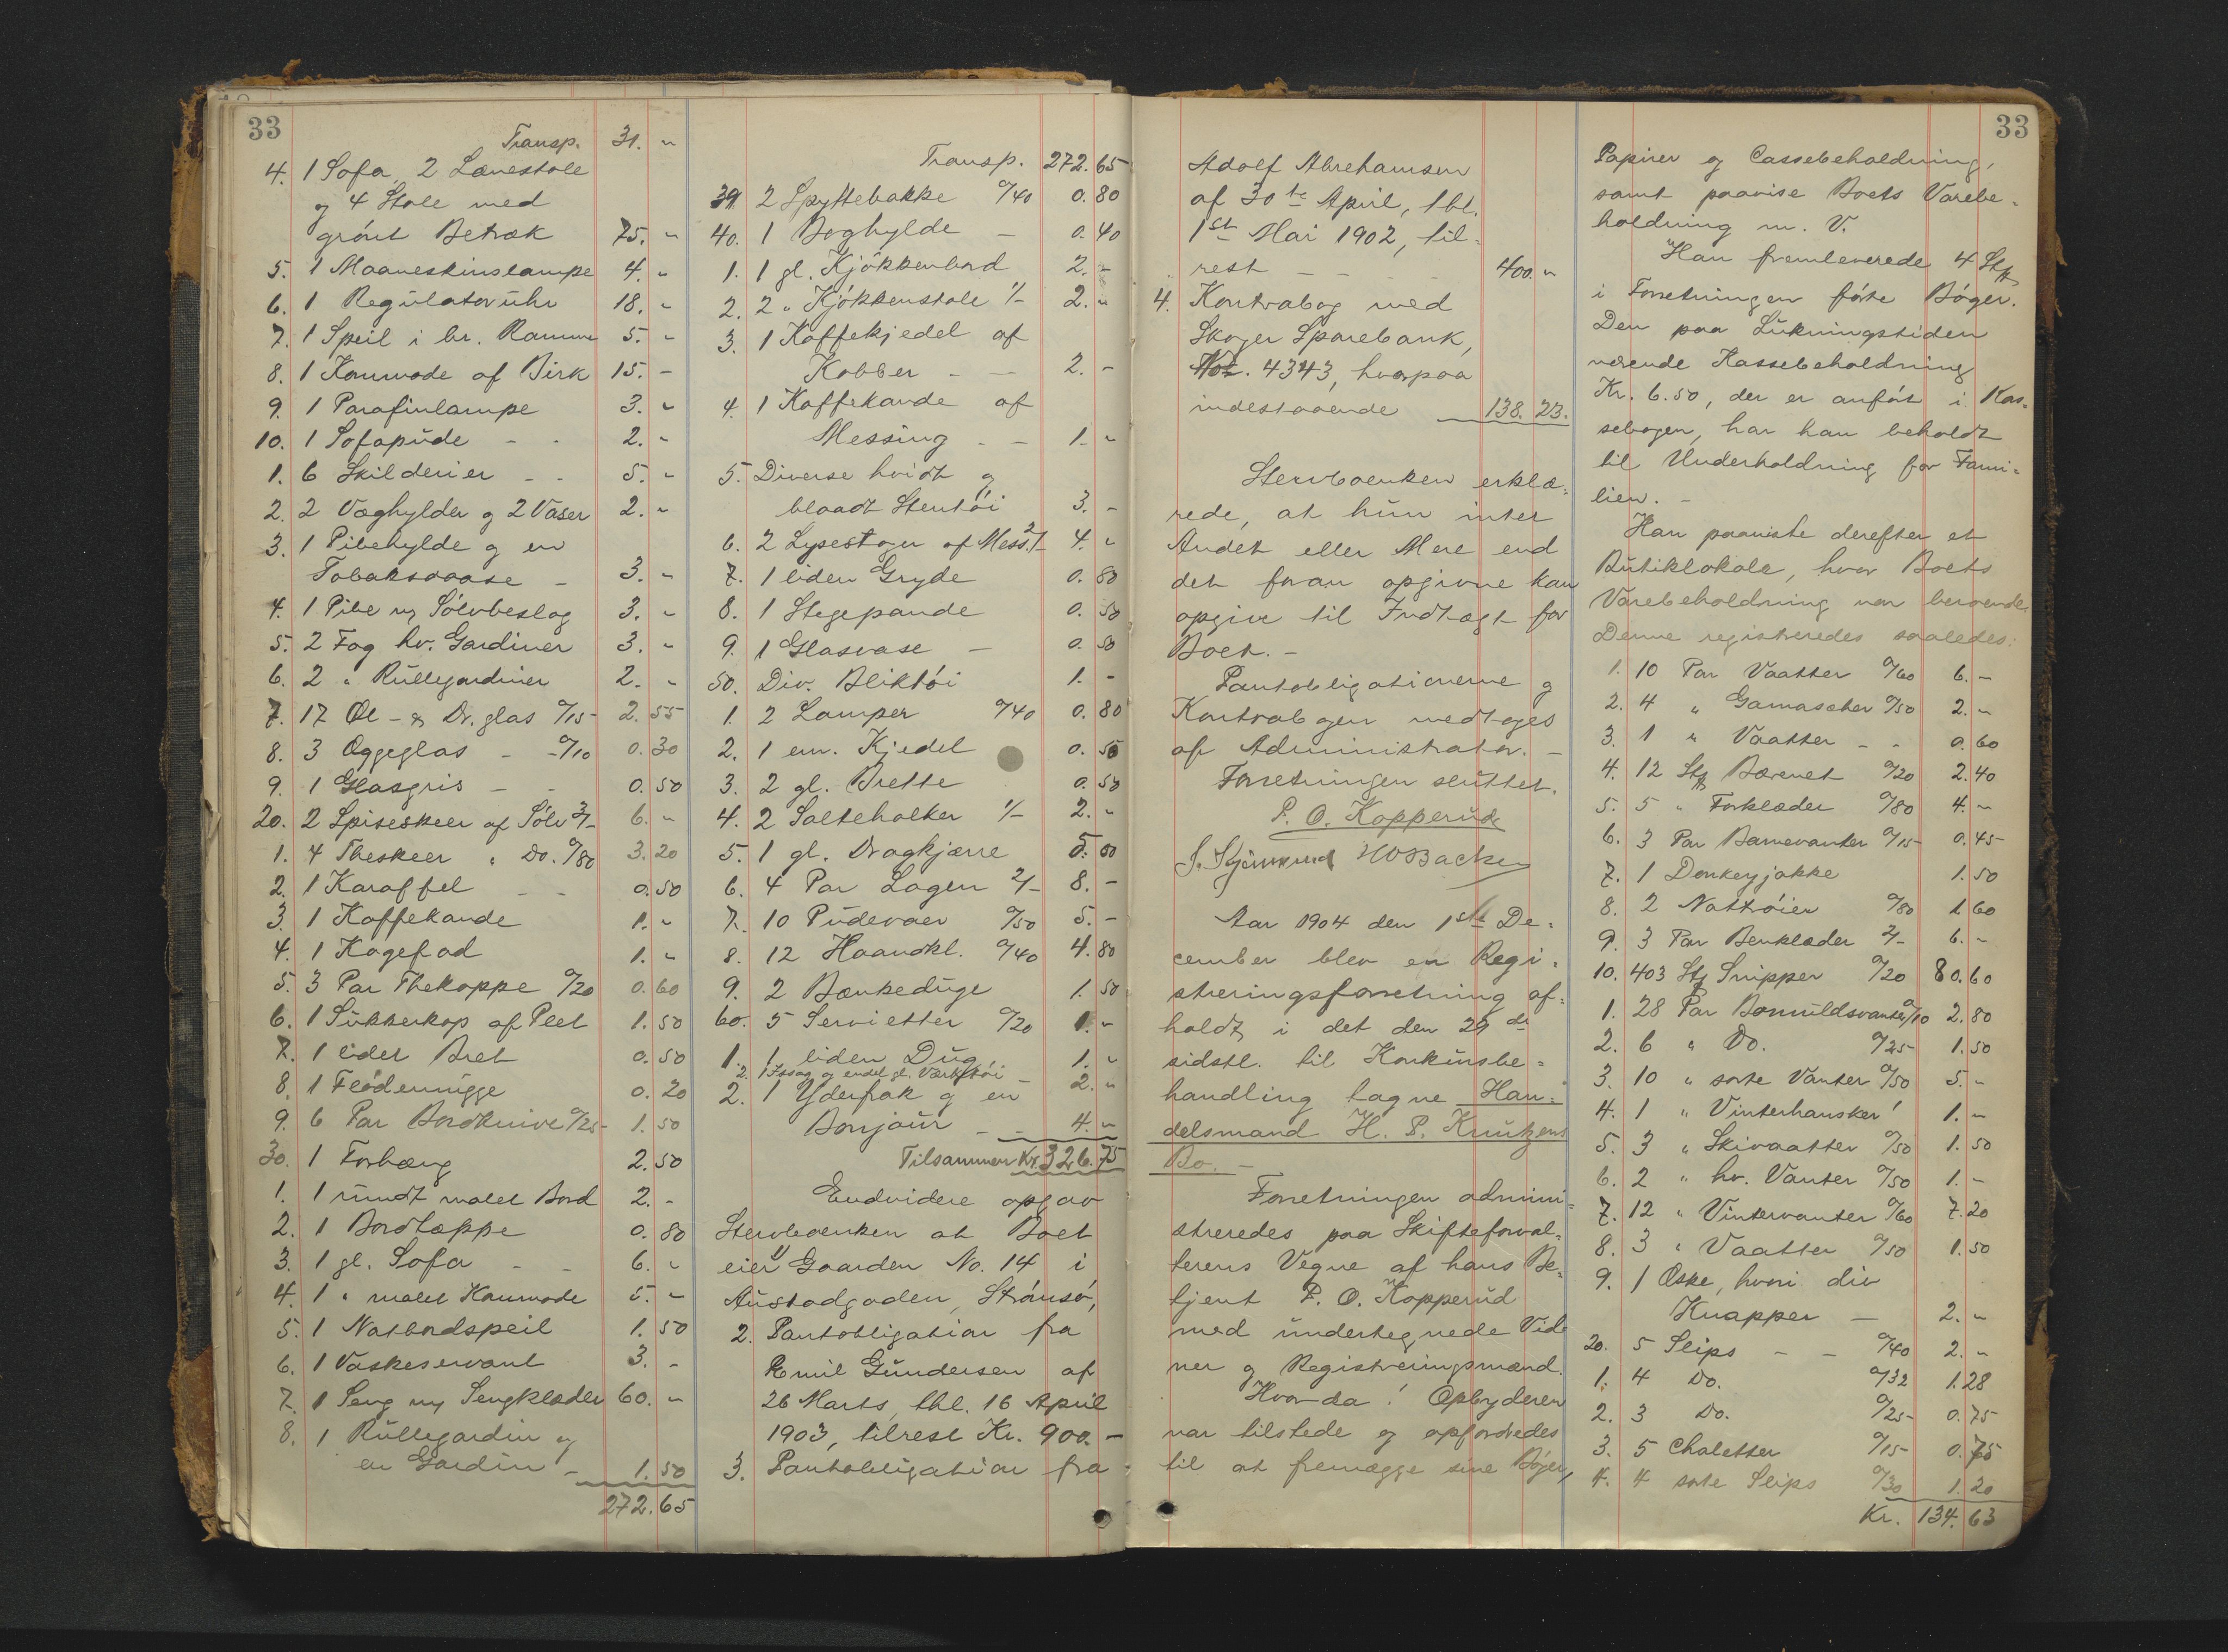 33
Transp. 31. "
4. 1 Sofa, 2 Lænestole
og 4 Stole med
grönt Betræk 75. "
5. 1 Maaneskinslampe 4. "
6. 1 Regulatoruhr 18. "
7. 1 Speil i br. Ramme 5. "
8. 1 Kommode af Birk 15. -
9. 1 Parafinlampe 3. "
10. 1 Sofapude - - 2. "
1. 6 Skilderier - - 5. "
2. 2 Væghylder og 2 Vaser 2. "
3. 1 Pibehylde og en
Tobaksdaase - 3. "
4. 1 Pibe m/ Sölvbeslag 3. "
5. 2 Fag hv. Gardiner 3. "
6. 2 " Rullegardiner 2. "
7. 17 Öl- & Dr. glas 0/15 2.55
8. 3 Æggeglas - - 0/10 0.30
9. 1 Glasgris - - 0.50
20. 2 Spiseskeer af Sölv 3/- 6. "
1. 4 Theskeer " Do. 0/80 3.20
2. 1 Karaffel - - 0.50
3. 1 Kaffekande 1. "
4. 1 Kagefad 1. "
5. 3 Par Thekoppe 0/20 0.60
6. 1 Sukkerkop af Plet 1.50
7. 1 lidet Bret 0.50
8. 1 Flödemugge 0.20
9. 6 Par Bordknive 0/25 1.50
30. 1 Forhæng 2.50
1. 1 rundt malet Bord 2. -
2. 1 Bordtæppe 0.80
3. 1 gl. Sofa - - 6. "
4. 1 " malet Kommode 5. "
5. 1 Natbordspeil 1.50
6. 1 Vaskeservant 3. -
7. 1 Seng m/ Sengklæder 60. "
8. 1 Rullegardin og
en Gardin - 1.50
272.65
Transp. 272.65
39. 2 Spyttebakke 0/40 0.80
40. 1 Boghylde - 0.40
1. 1 gl. Kjökkenbord 2. -
2. 2 " Kjökkenstole 1/- 2. "
3. 1 Kaffekjedel af
Kobber - - 2. -
4. 1 Kaffekande af
Messing - - 1. "
5. Diverse hvidt og
blaadt Stentöi 3. -
6. 2 Lysestager af Mess. 2/- 4. "
7. 1 liden Gryde 0.80
8. 1 Stegepande 0.50
9. 1 Glasvase - 0.50
50. Div. Bliktöi 1. -
1. 2 Lamper 0/40 0.80
2. 1 em. Kjedel 0.50
3. 2 gl. Brette 0.50
4. 2 Salteholker 1/- 2. "
5. 1 gl. Dragkjærre 5.50
6. 4 Par Lagen 2/- 8. -
7. 10 Pudevaer 0/50 5. -
8. 12 Haandkl. 0/40 4.80
9. 2 Bænkeduge 1.50
60. 5 Servietter 0/20 1. "
1. 1 liden Dug 1. "
2. 1 Issag og endel gl. Værktöi - 2. "
2. 1 Yderfrak og en
Bonjour - - 4. "
Tilsammen Kr. 326.75
Endvidere opgav
Stervboenken at Boet
eier 1) Gaarden No. 14 i
Austadgaden, Strömsö,
2. Pantobligation fra
Emil Gundersen af
26 Marts, thl. 16 April
1903, tilrest Kr. 900. -
3. Pantobligation fra
Adolf Abrahamsen
af 30te April, thl.
1ste Mai 1902, til-
rest - - - - 400. "
4. Kontrabog med
Skoger Sparebank,
Not. 4343, hvorpaa
indestaaende 138.23.
Stervboenken erklæ-
rede, at hun intet
Andet eller Mere end
det foran opgivne kan
opgive til Indtægt for
Boet. -
Pantobligationerne og
Kontrabogen medtoges
af Administrator. -
Forretningen sluttet.
P. O. Kopperud
HOBacken
Aar 1904 den 1ste De-
cember blev en Regi-
streringsforretning af-
holdt i det den 29de
sidstl. til Konkursbe-
handling tagne Han-
delsmand H. P. Knutzens
Bo. -
Forretningen admini-
streredes paa Skifteforval-
terens Vegne af hans Be-
tjent P. O. Kopperud
med undertegnede Vid-
ner og Registreringsmænd.
Hvor da! Opbyderen
var tilstede og opfordredes
til at fremlægge sine Böger,
33
Papirer og Cassebeholdning,
samt paavise Boets Varebe-
holdning m. V.
Han fremleverede 4 Stk
i Forretningen förte Böger.
Den paa Lukningstiden
værende Kassebeholdning
Kr. 6.50, der er anfört i Kas-
sebogen, har han beholdt
til Underholdning for Fami-
lien. -
Han paaviste derefter et
Butiklokale, hvor Boets
Varebeholdning var beroende.
Denne registreredes saaledes:
1. 10 Par Vaatter 0/60 6. -
2. 4 " Gamascher 0/50 2. "
3. 1 " Vaatter - - 0.60
4. 12 Stk Barenet 0/20 2.40
5. 5 " Forklæder 0/80 4. "
6. 3 Par Barnevanter 0/15 0.45
7. 1 Donkeyjakke 1.50
8. 2 Nattröier 0/80 1.60
9. 3 Par Benklæder 2/- 6. "
10. 403 Stk Snipper 0/20 80.60
1. 28 Par Bomuldsvanter 0/10 2.80
2. 6 " Do. 0/25 1.50
3. 10 " sorte Vanter 0/50 5. "
4. 1 " Vinterhansker 1. "
5. 3 " Skivaatter 0/50 1.50
6. 2 " hv. Vanter 0/50 1. -
7. 12 " Vintervanter 0/60 7.20
8. 3 " Vaatter 0/50 1.50
9. 1 Æske, hvori div
Knapper - 2. "
20. 5 Slips - - 0/40 2. "
1. 4 Do. 0/32 1.28
2. 3 Do. 0/25 0.75
3. 5 Chaletter 0/15 0.75
4. 4 sorte Slips 0/30 1.20
Kr. 134.63